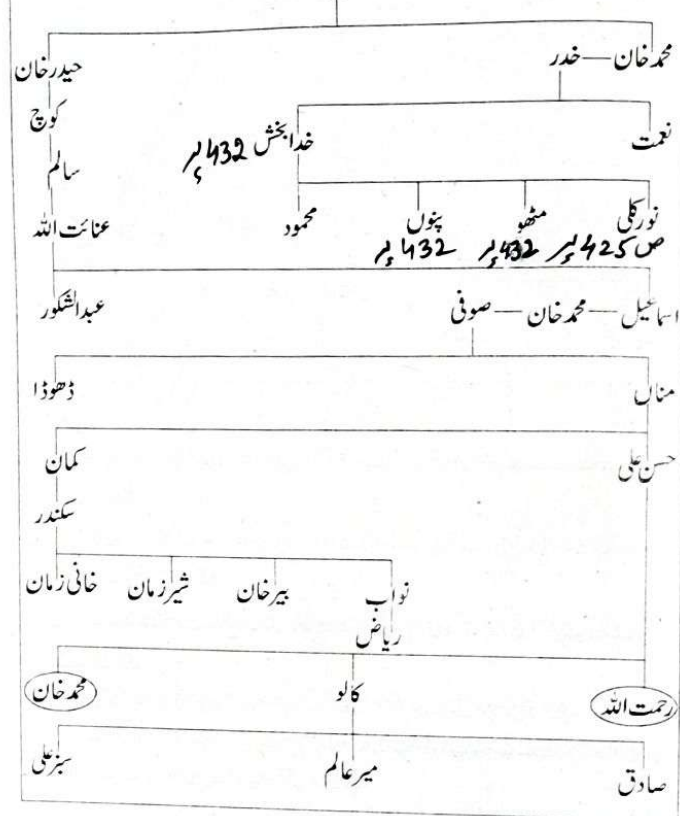 محمد خان — خدر حیدر خان
کوچ
نعمت خدا بخش 432 پر
سالم
نور کلی مٹھو پنوں محمود عنائت اللہ
ص 425 پر 432 پر 432 پر
اسماعیل — محمد خان — صوفی عبدالشکور
مناں ڈھوڈا
حسن علی کمان
سکندر
نواب بیر خان شیر زمان خانی زمان
ریاض
رحمت اللہ کالو محمد خان
صادق میر عالم سبز علی